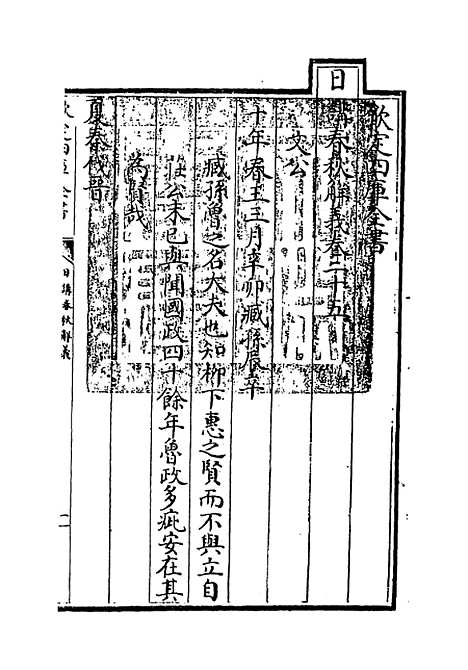 欽定四庫全書
日講春秋解義卷二十五
文公
十年春王三月辛卯臧孫辰卒
臧孫魯之名大夫也知柳下惠之賢而不與立自
莊公末已與聞國政四十餘年魯政多疵安在其
為賢哉
夏秦伐晉
欽定四庫全書
日講春秋解義
一